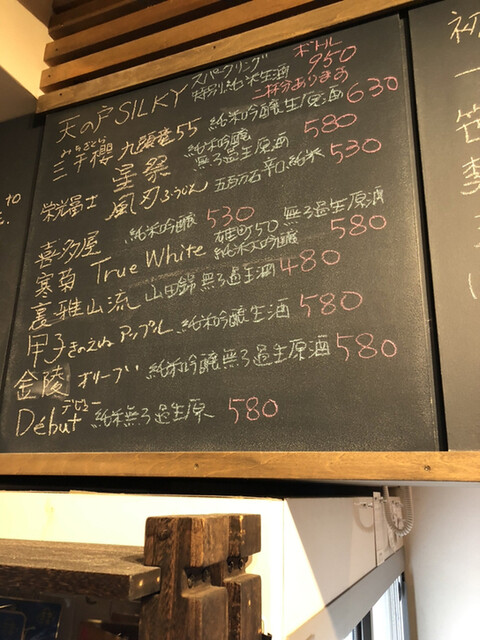 天の戸 SILKY スパークリング 特別純米生酒 ボトル 950 二杯分あります
三千櫻 みちざくら 九頭竜55 純米吟醸生原酒 630
栄光冨士 星祭 純米吟醸 無ろ過生原酒 580
風刃 ふうじん 五百万石 辛口純米 530
喜多屋 純米吟醸 530
寒菊 True White 雄町50 無ろ過生原酒 純米大吟醸 580
裏雅山流 山田錦 無ろ過生酒 480
甲子 きのえね アップル 純米吟醸生酒 580
金陵 オリーブ 純米吟醸無ろ過生原酒 580
Debut デビュー 純米無ろ過生原 580
初
一
笹
to